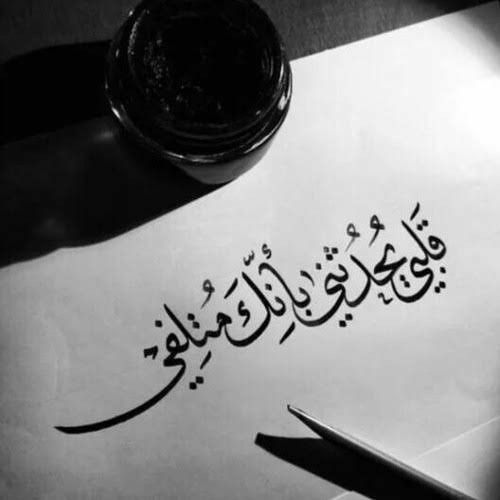 قَلبي يُحَدُثُني بأَنِّكَ مُتِلِفي